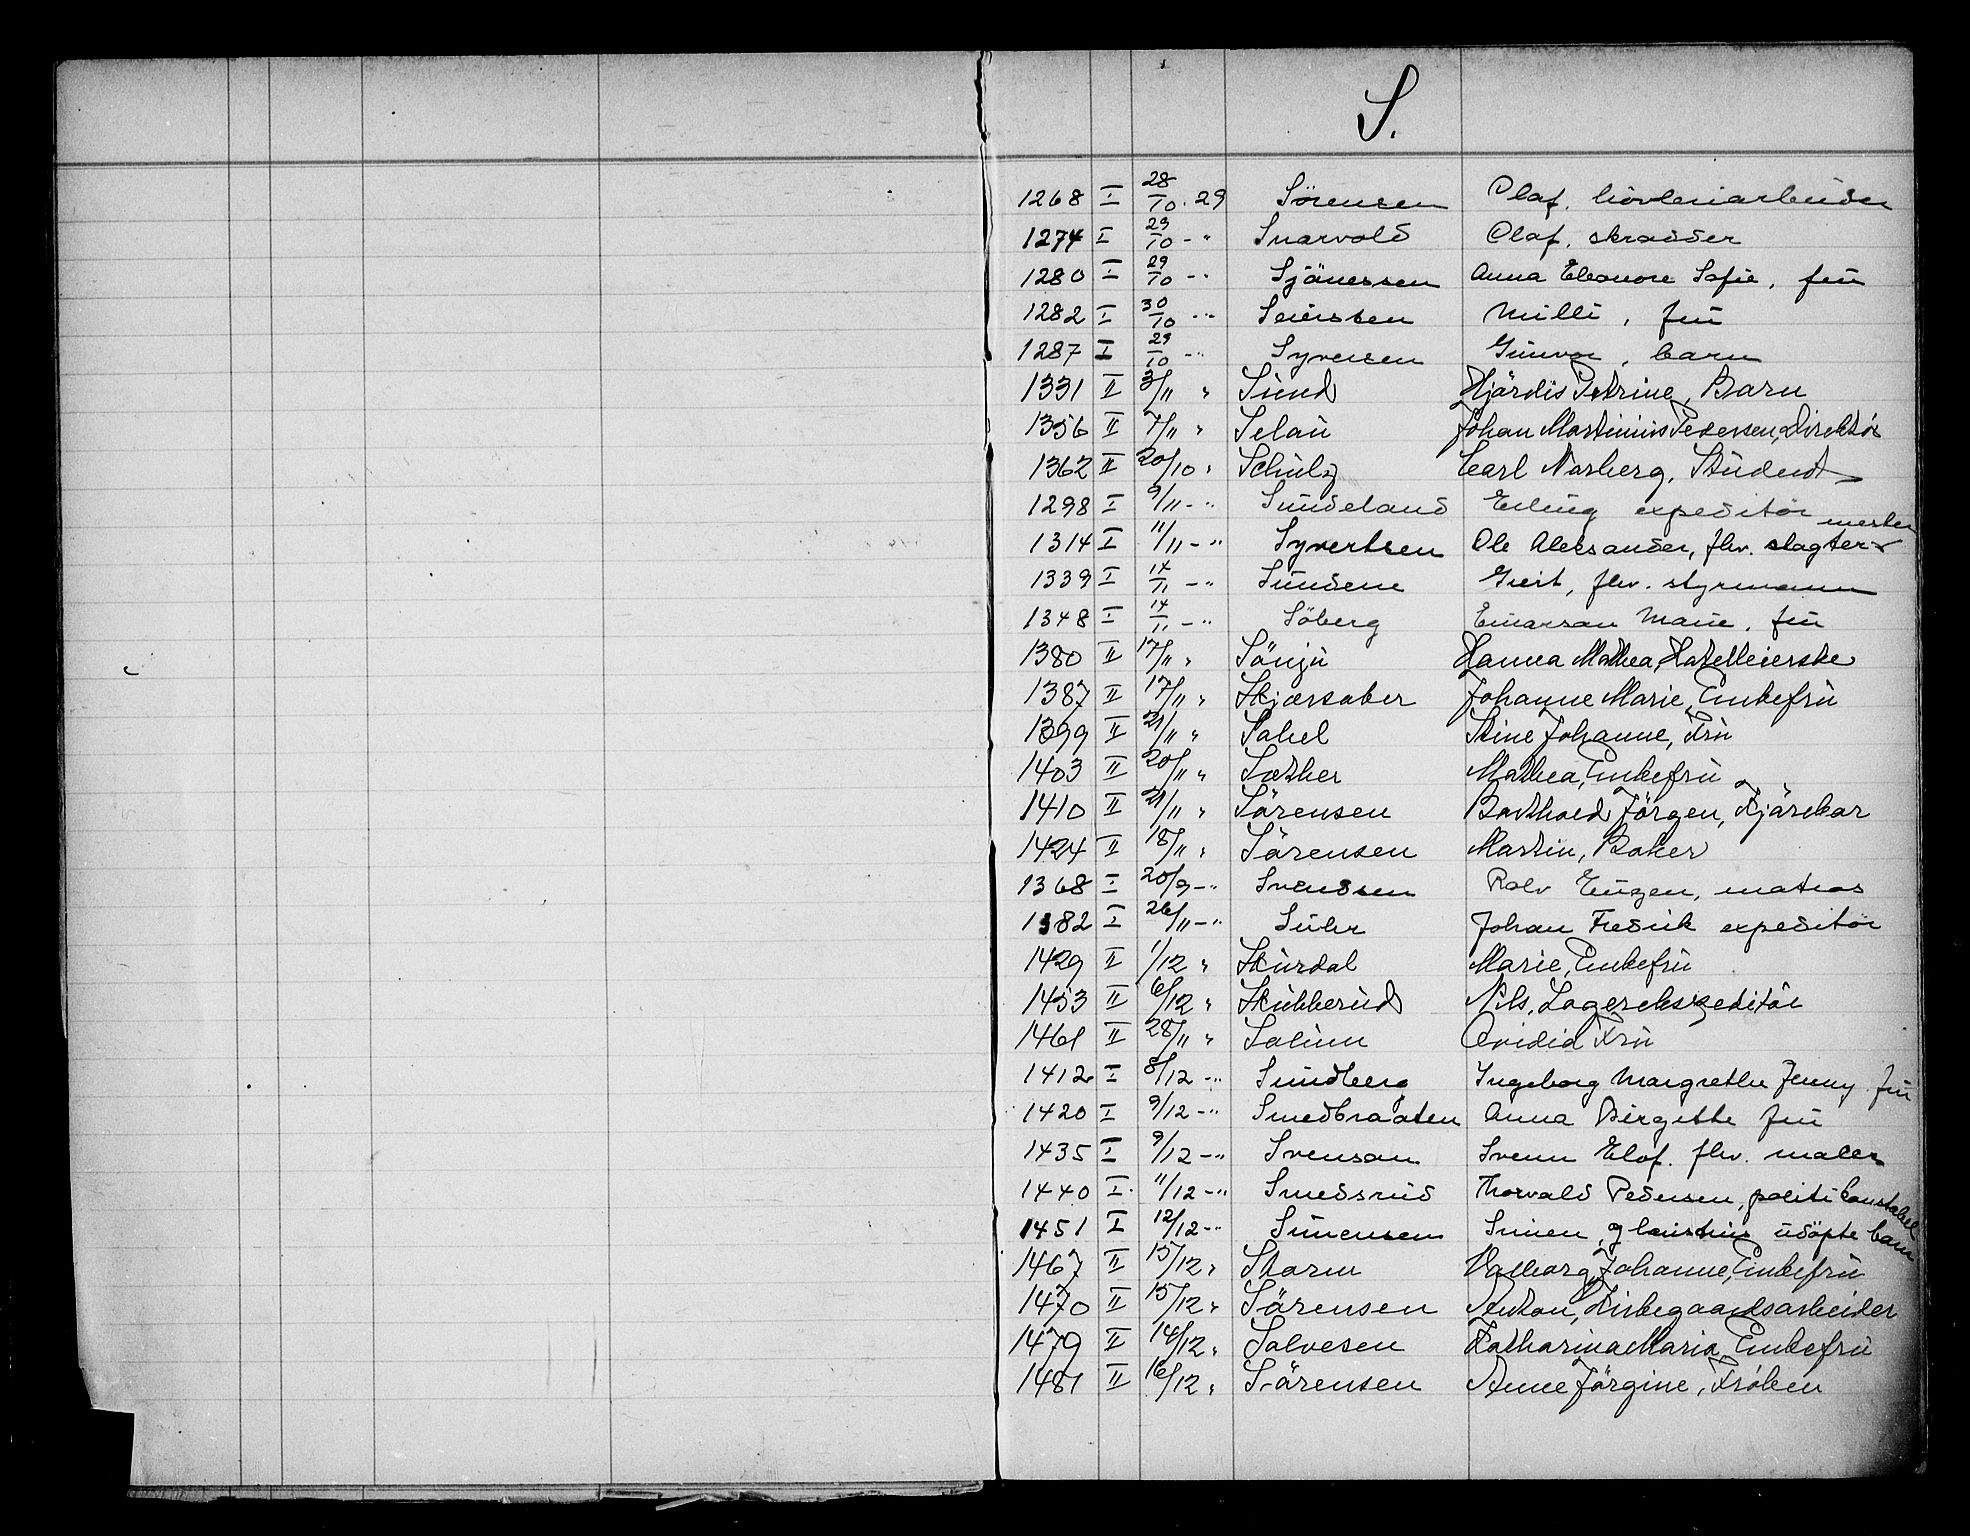 S.
1268 I 28/10.29 Sörensen Olaf, hövleriarbeider
1274 I 29/10 - " Snarvold Olaf, skrædder
1280 I 29/10 - " Sjönessen Anna Eleonore Sofie, frü
1282 I 30/10 - " Seierssen Milli, frü
1287 I 29/10 - " Syversen Günvor, barn
1331 II 3/11 " Sünd Hjördis Petrine, Barn
1356 II 7/11 " Selaü Johan Martiniüs Pedersen, Direktör
1362 II 20/10 " Schülz Carl Norberg, Stüdent
1298 I 9/11 - " Sündeland Erling expeditör
1314 I 11/11 - " Syvertsen Ole Aleksander, fhv. slagtermester
1339 I 14/11 - " Sündene fhv. styrmann
1348 I 14/11 - " Söberg Einarsan Marie, frü
1380 II 17/11 " Sönjü Hanna Mathea, Hotelleierske
1387 II 17/11 " Skjærsaker Johanne Marie, Enkefrü
1399 II 21/11 " Sahel Stine Johanne, Frü
1403 II 20/11 " Sæther Mathea, Enkefrü
1410 II 21/11 " Sörensen Barthold Jörgen, Kjörekar
1424 II 18/11 " Sörensen Martin, Baker
1368 I 20/9 - " Svendsen Rolv Eügen, matros
1382 I 26/11 - " Sühr Johan Fredrik expeditör
1429 II 1/12 " Skürdal Marie, Enkefrü
1453 II 6/12 " Skübberüd Nils, Lagerekspeditör
1461 II 28/11 " Solüm Ovidia Frü
1412 I 8/12 - " Sündberg Ingeborg Margrethe Jenny frü
1420 I 9/12 - " Smedbraaten Anna Birgitte frü
1435 I 9/12 - " Svensan Svenn Elof. fhv. maler
1440 I 11/12 - " Smedsrüd Thorvald Pedersen, politikonstabel
1451 I 12/12 - " Simensen Simen, og hüstrüs üdöpte barn
1467 II 15/12 " Storm Valborg Johanne, Enkefrü
1470 II 15/12 " Sörensen Anton, Kirkegaardsarbeider
1479 II 14/12 " Salvesen Katharina Maria, Enkefrü
1481 II 16/12 " Sörensen Anne Jörgine, Fröken